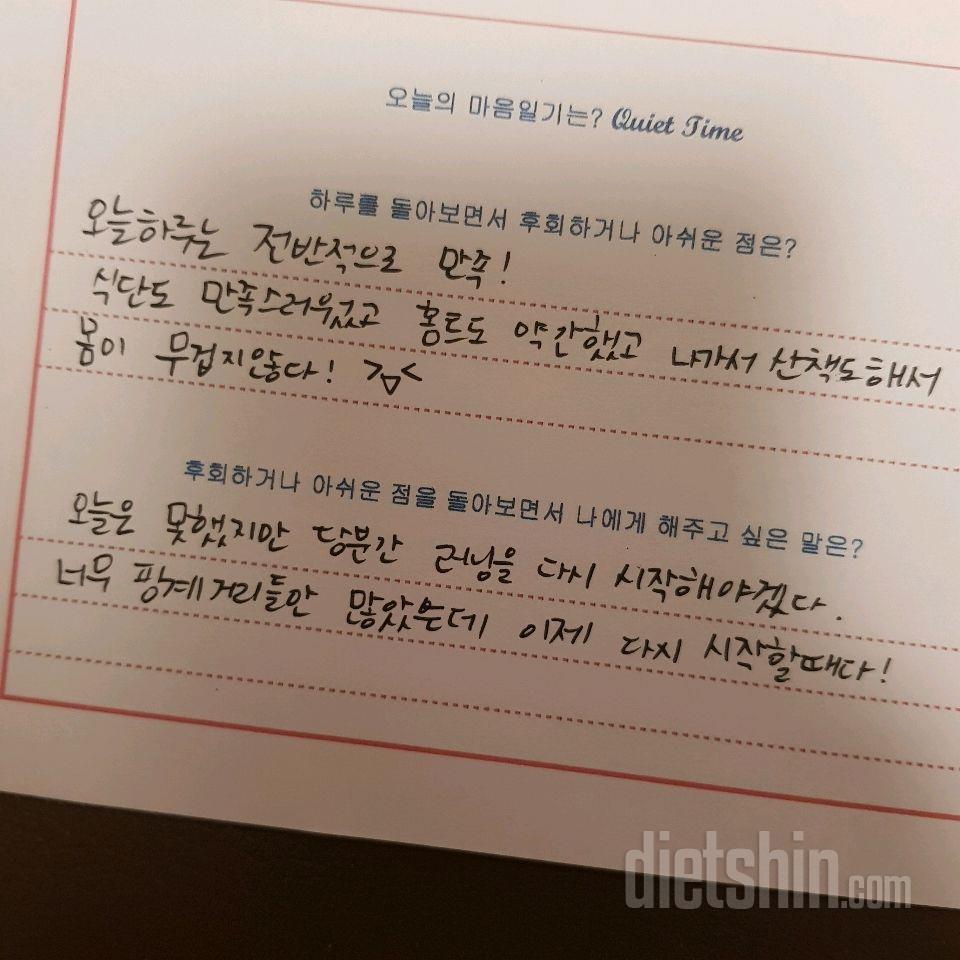 오늘의 마음일기는? Quiet Time
하루를 돌아보면서 후회하거나 아쉬운 점은?
오늘하루는 전반적으로 만족!
식단도 만족스러웠고 홈트도 약간했고 나가서 산책도해서
몸이 무겁지않다! >_<
후회하거나 아쉬운 점을 돌아보면서 나에게 해주고 싶은 말은?
오늘은 못했지만 당분간 러닝을 다시 시작해야겠다.
너무 핑계거리들만 많았는데 이제 다시 시작할때다!
dietshin.com